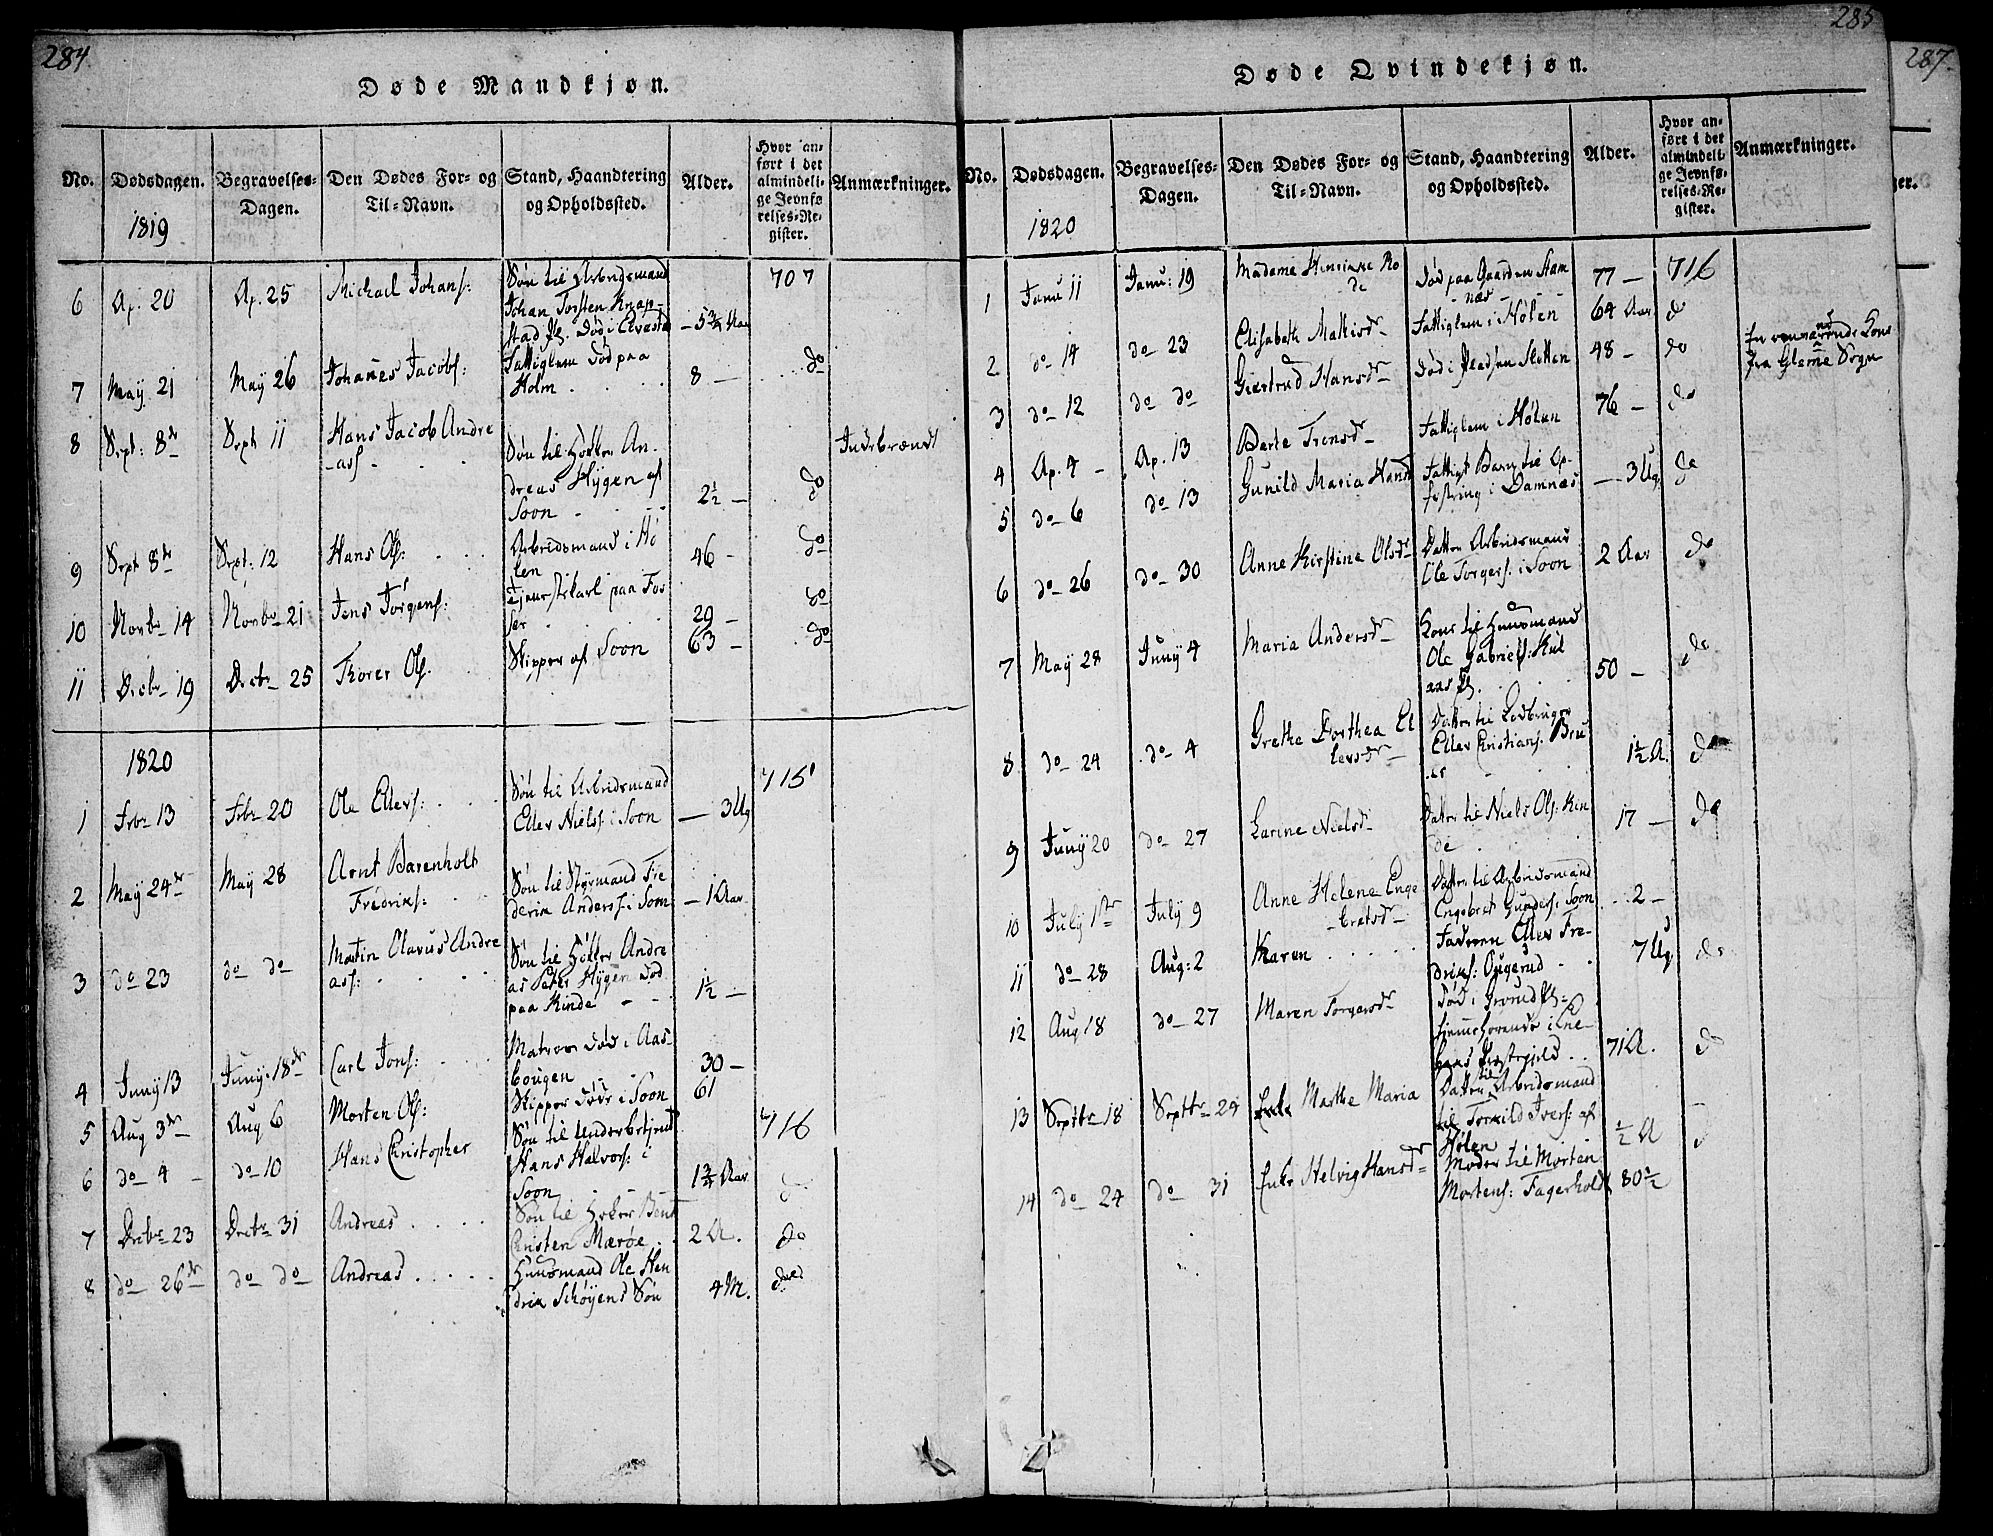 284
Døde Mandkjøn.
No.
Dødsdagen.
Begravelses-
Dagen.
Den Dødes For- og
Til-Navn.
Stand, Haandtering
og Opholdssted.
Alder.
Hvor an-
ført i det
almindeli-
ge Jevnfø
relses-Re-
gister.
Anmærkninger.
1819
6 Ap. 20 Ap. 25 Michael Johans: Søn til Arbeidsmand 707
Johan Torsten Knap-
stad Død i 5 3/4 Aar
7 May 21 May 26 Johanes Jacobs: Fattiglem død paa
Holm 8 — do
8 Sept: 8de Sept 11 Hans Jacob Andre
-as: Søn til Høker An-
dreas Hÿgen af
Soon 2½ — do
9 Sept 8de Sept: 12 Hans Ols: Arbeidsmand i Hø
len 46 - do
10 Novbr 14 Novbr 21 Jens Jørgens: Tjenestekarl paa Fos
ser 29 - do
11 Decbr 19 Decbr 25 Thorer Ols. Skipper af Soon 63 - do
1820
1 Febr 13 Febr 20 Ole Ellevs: Søn til Arbeidsmand 715
Ellev Niels: i Soon — 3 Ug
2 May 24de May 28 Arnt Barenholt
Fredriks: Søn til Styrmand Fre
derik Anders: i Soon — 1 Aar
3 do 23 do do Martin Olavus Andre
as: Søn til Høker Andre
as Peter Hÿgen død
paa Kinde 1½ —
4 Juny 13 Juny 18de Carl Jons: Matros død i Aas-
bougen 30 —
5 Aug 3de Aug 6 Morten Ols: Skipper døde i Soon 61
6 do 4 do 10 Hans Christopher Søn til Underbetjent 716
Hans Halvors: i
Soon 1¾ Aar do
7 Decbr 23 Decbr 31 Andreas Søn til Høker Bent
Cristen Mærøe 2 A. do
8 do 26de do do Andreas Huusmand Ole Hen
drik Schöyens Søn 4 M. do
285
Døde Qvindekjøn.
No.
Dødsdagen.
Begravelses-
Dagen.
Den Dødes For- og
Til-Navn.
Stand, Haandtering
og Opholdssted.
Alder.
Hvor an-
ført i det
almindeli-
ge Jevnfø-
relses-Re-
gister.
Anmærkninger.
1820
1 Janu 11 Janu: 19 Madame Henrikke Ro
de død paa Gaarden Ram
næs 77 — 716
2 do 14 do 23 Elisabeth Mathisdr Fattiglem i Hølen 64 Aar do
3 do 12 do do Giertrud Hansdr død i Pladsen Sletten 48 - do
Kone
fra Glemme Sogn
4 Ap. 4 - Ap. 13 Berte Trensdr Fattiglem i Hølen 76 — do
5 do 6 do 13 Gunild Maria Hansd Fattigt Barn til Op-
fostring i Damnæs — 3 Ug. do
6 do 26 do 30 Anne Kirstine Olsdr Datter Arbeidsmand
Ole Torgers: i Soon 2 Aar do
7 May 28 Juny 4 Maria Andersdr Kone til Huusmand
Ole Gabriels: Kul
aas 50 — do
8 do 24 do 4 Grethe Dorthea El
levsdr Datter til Ledbruger
Ellev Cristians: Bru
er 1½ A. do
9 Juny 20 do 27 Larine Nielsd Datter til Niels Ols: Kin
de 17 — do
10 July 1ste July 9 Anne Helene Enge
bretsdr Datter til Arbeidsmand
Engebret Gunders: Soon 2 —
11 do 28 Aug: 2 Karen Faderen Ellev Fre-
driks: Ougerud 7 Ug. do
12 Aug 18 do 27 Maren Torgersdr død i
hiemmehørende i Ene-
71 A. do
13 Septbr 18 Septbr 24 Marthe Maria Datter til Arbeidsmand
til Torkild Ivers: af
Hølen ½ A do
14 do 24 do 31 Enke Helvig Hansdr Moder til Morten
Mortens: Fagerholt 80½
287.
ger.